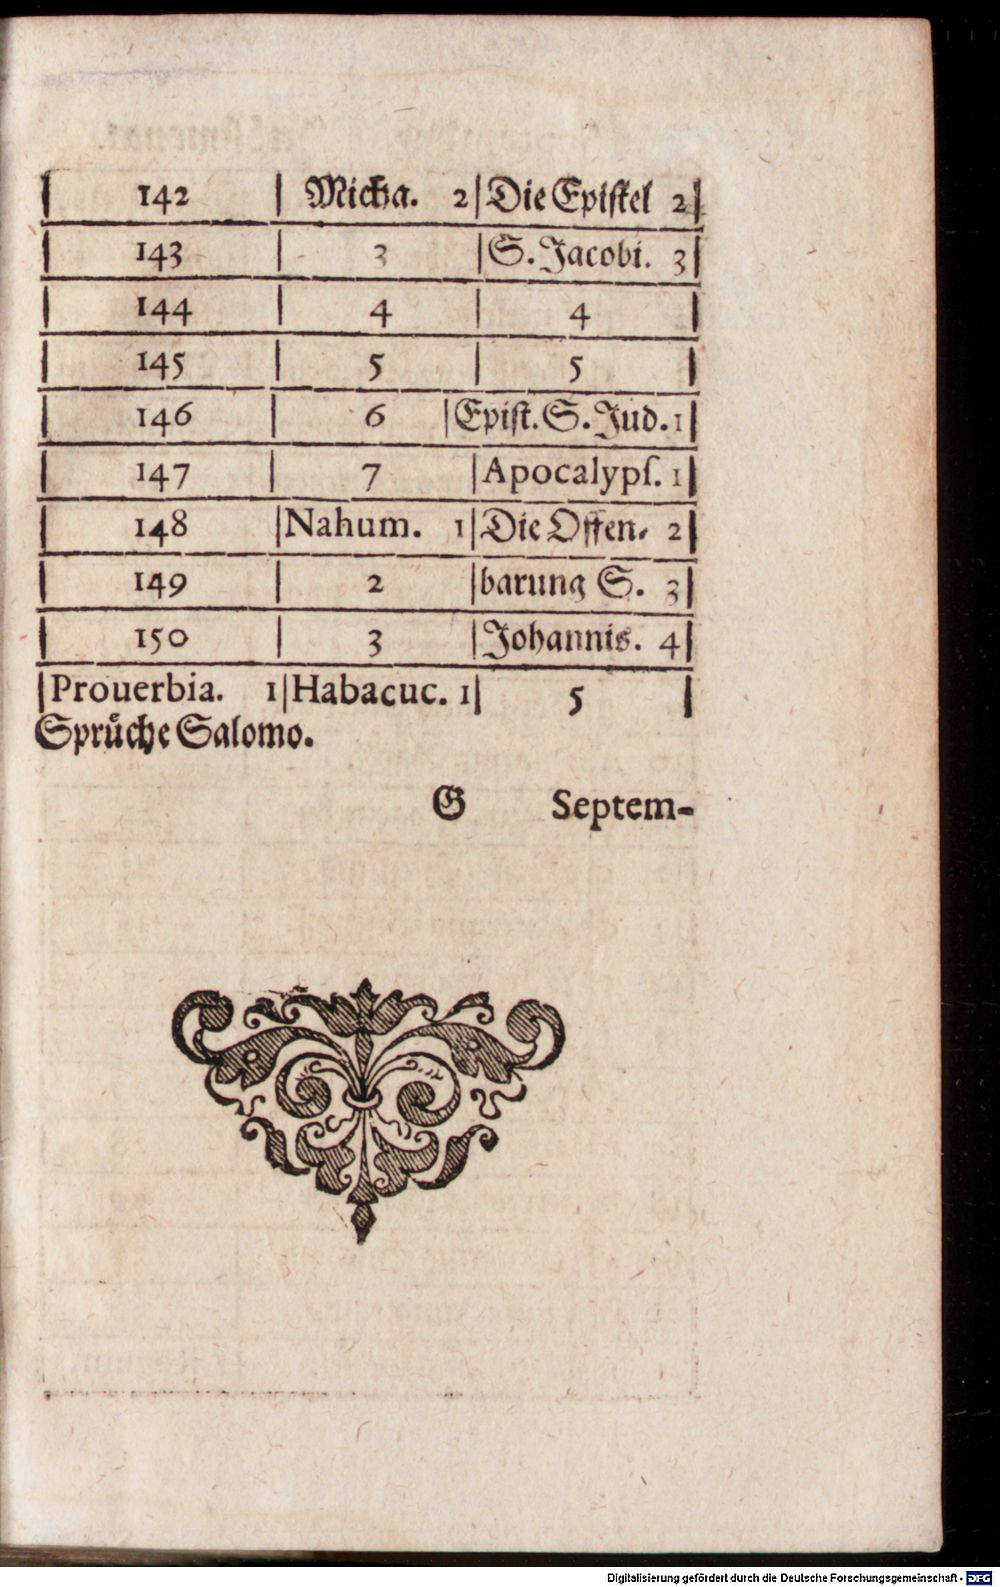 142 | Micha. 2 | Die Epistel 2
143 | 3 | S. Jacobi. 3
144 | 4 | 4
145 | 5 | 5
146 | 6 | Epist. S. Jud. 1
147 | 7 | Apocalypſ. 1
148 | Nahum. 1 | Die Offen- 2
149 | 2 | barung S. 3
150 | 3 | Johannis. 4
Prouerbia. 1 | Habacuc. 1 | 5
Sprůche Salomo.
G Septem-
Digitalisierung gefördert durch die Deutsche Forschungsgemeinschaft - DFG